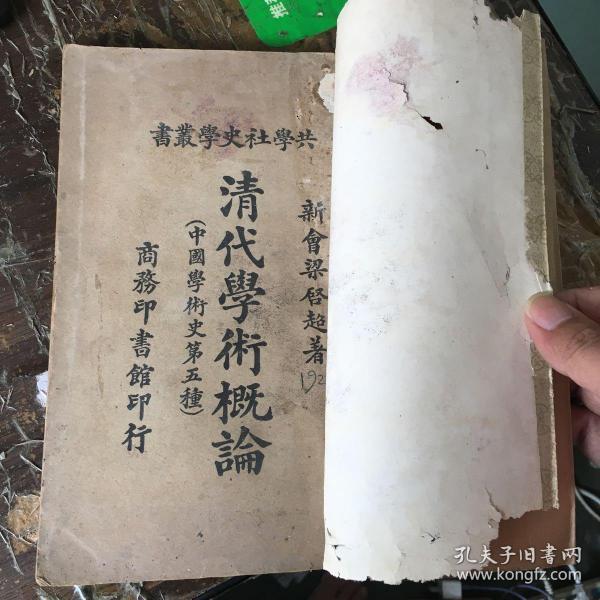 共學社史學叢書
新會梁啓超著
192
清代學術概論
(中國學術史第五種)
商務印書館印行
孔夫子旧書网
www.kongfz.com